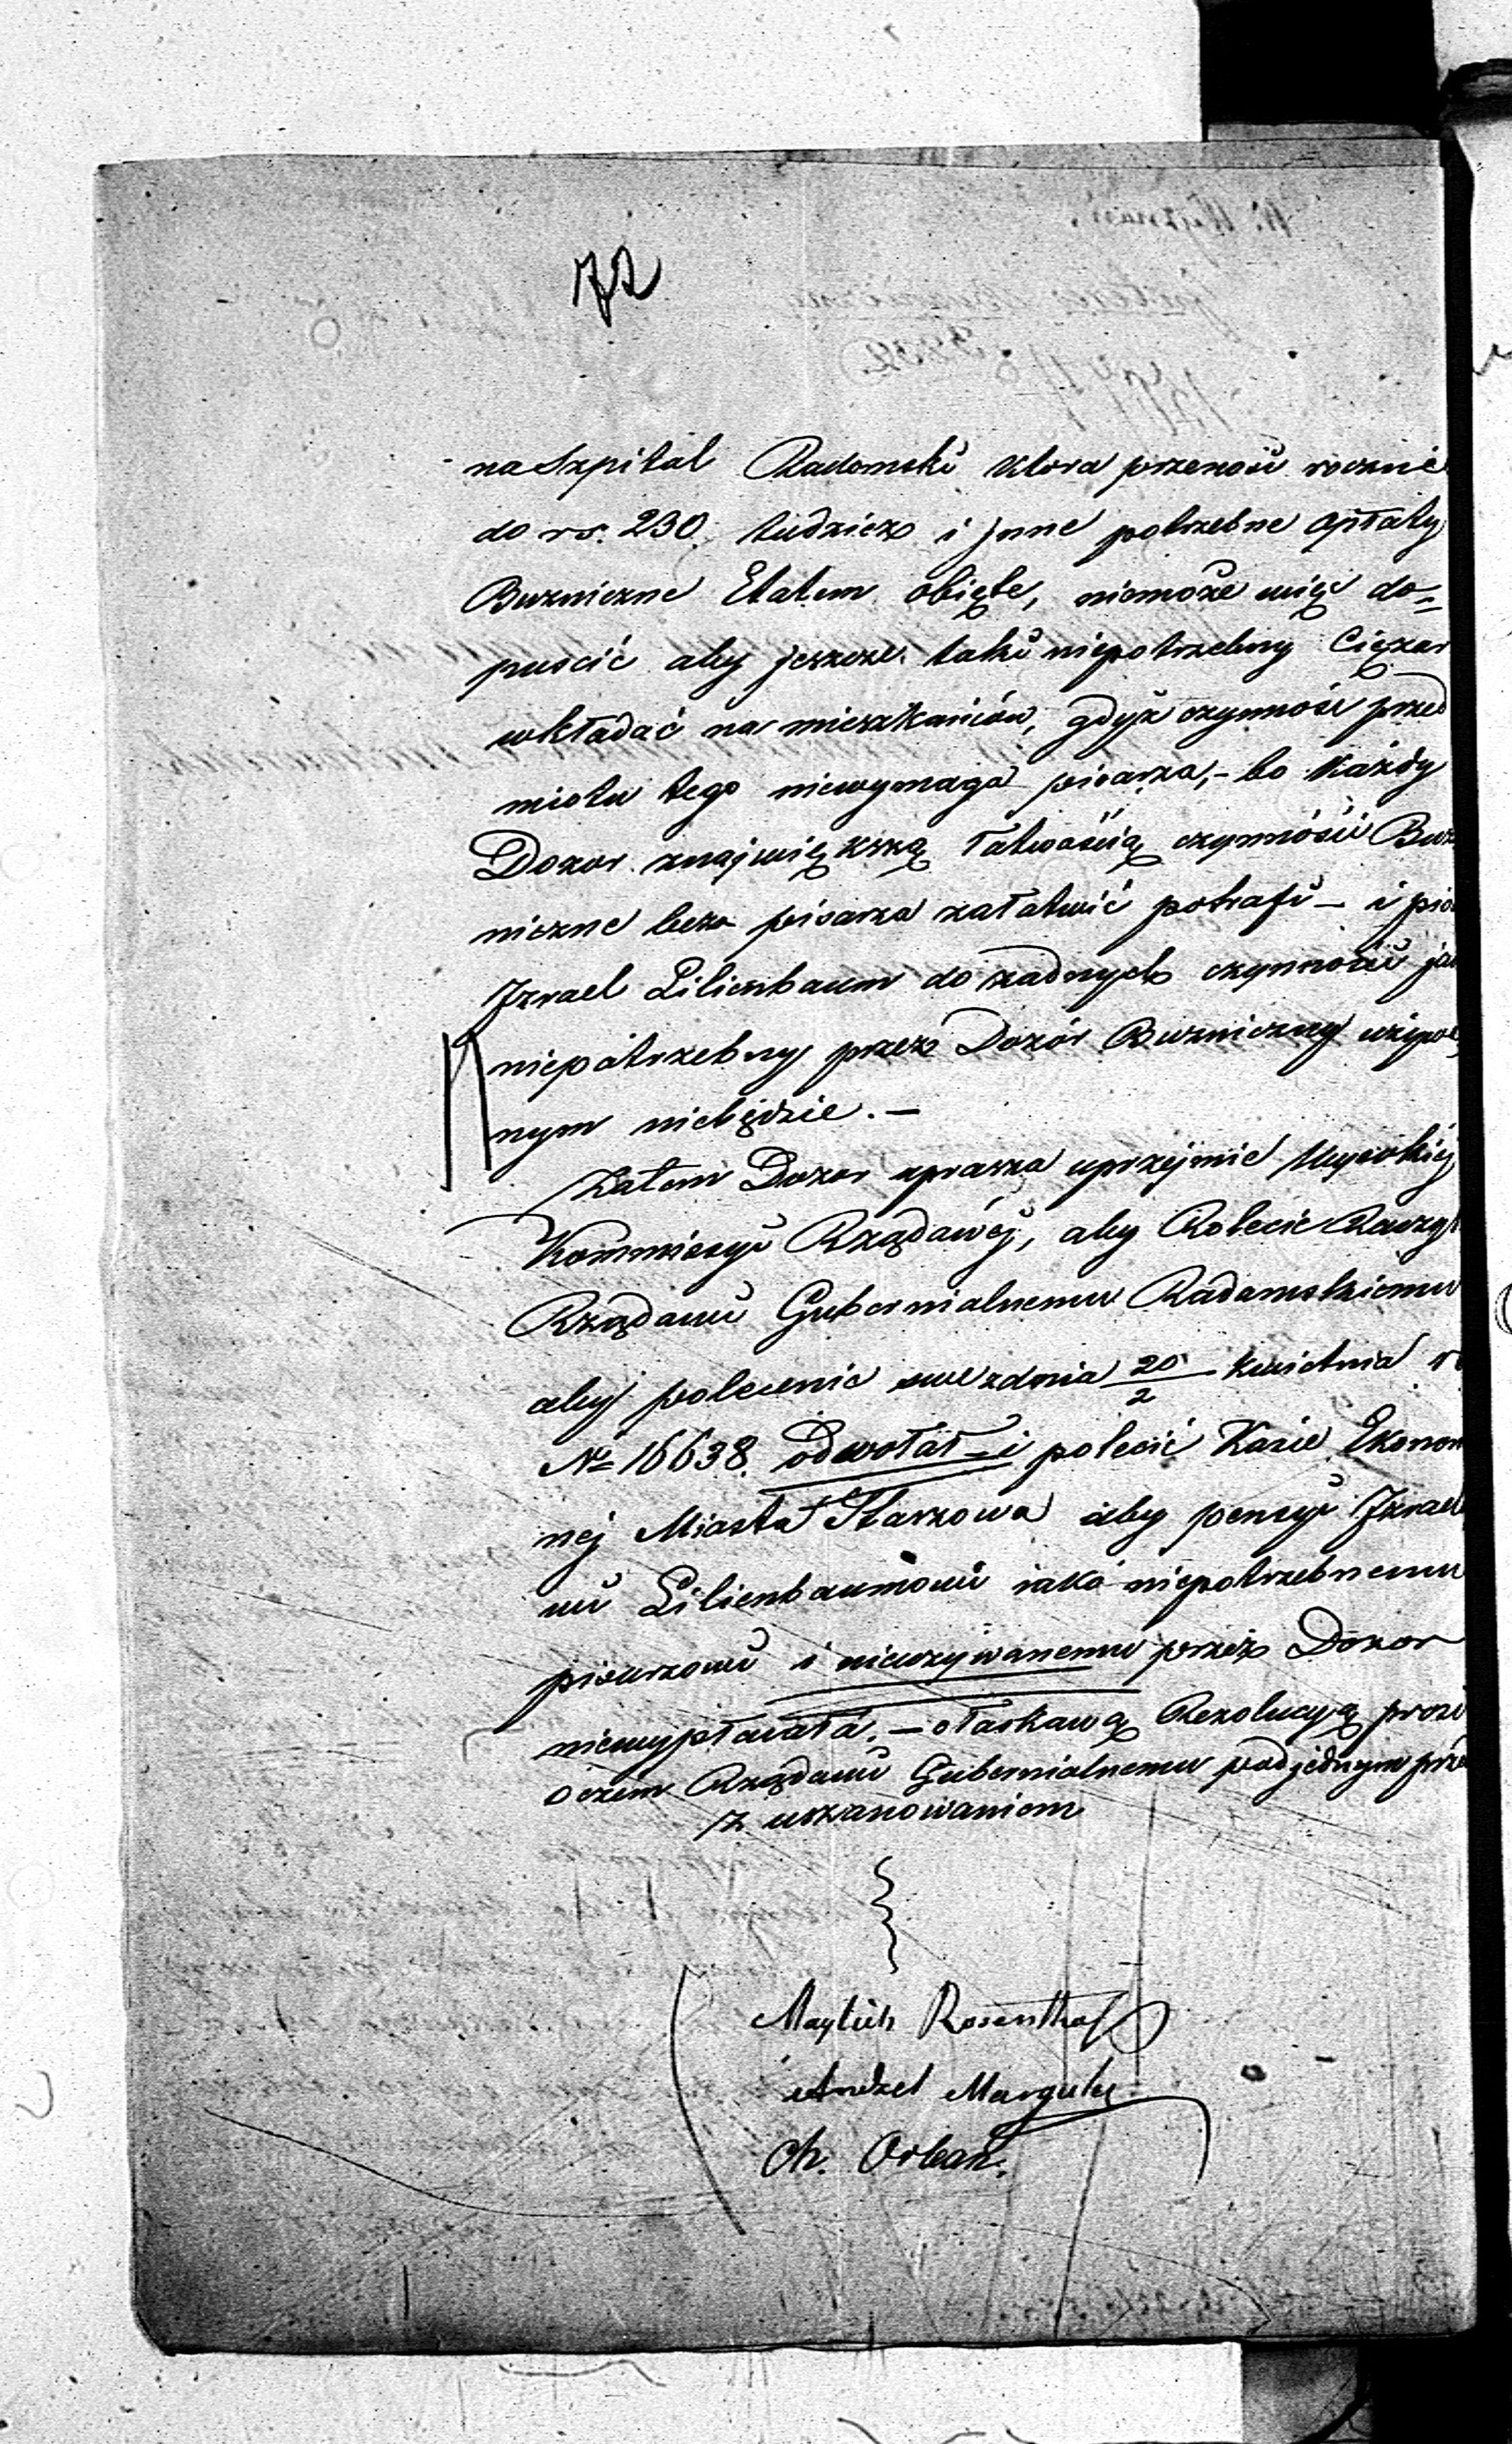 72
na Szpital Radomski ktora przenosi rocznie
do rs. 230. tudzież i jnne potrzebne opłaty
Buzniczne Etatem obięte, niemoże więc do=
puscić aby jeszcze taki niepotrzebny Ciężar
wkładać na mieszkańców, gdyż czynność przed
miotu tego niewymaga pisarza,- bo każdy
Dozor znajwiękrzą łatwością czynności Buz
niczne bez pisarza załatwić potrafi - i
Izrael Lilienbaum do żadnych czynności
niepotrzebny przez Dozór Buzniczny
nym niebędzie. -
Zatem Dozor uprasza uprzejmie Wysokiej
Kommissyi Rządawej, aby Rolecic
Rządowi Gubernialnemu Radomskiemu
aby polecenie swe zdnia 20/2 kwietnia
No 16638. odwołał i polecić Kasie Ekonom
nej Miasta Starzowa aby pensyi Izrael
wi Lilienbaumowi iako niepotrzebnemu
pisarzowi i nieuzywanemu przez Dozor
niewypłacała. - o łaskawą Rezolucyą prosi
o czem Rządowi Gubernialnemu pod jednym
z uszanowaniem
Rosenthal
Margules
Ch. Orbach.